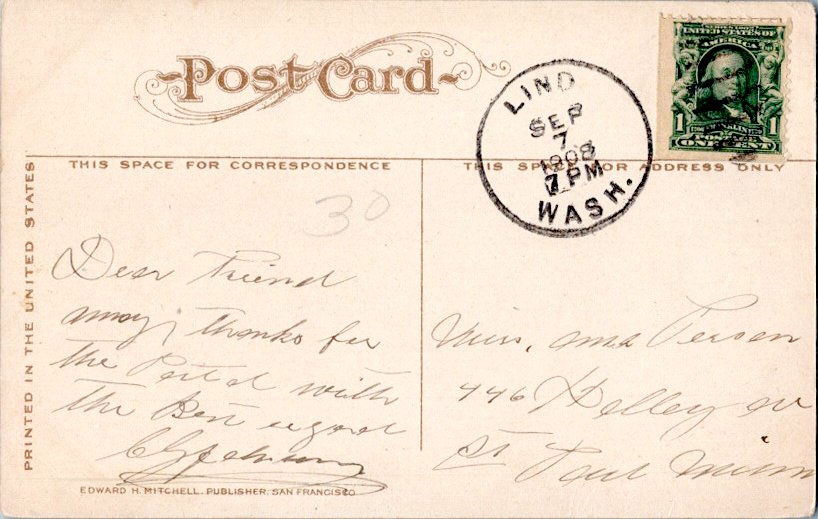 Post Card
LIND
SEP
7
1908
7 PM
WASH.
SERIES 1902
UNITED STATES OF
AMERICA
1 FRANKLIN 1
POSTAGE
ONE CENT
THIS SPACE FOR CORRESPONDENCE
THIS SPACE FOR ADDRESS ONLY
PRINTED IN THE UNITED STATES
30
Dear Friend
many thanks for
the Postd with
the Best regard
Miss, Person
446
St Paul Minn
EDWARD H. MITCHELL, PUBLISHER, SAN FRANCISCO